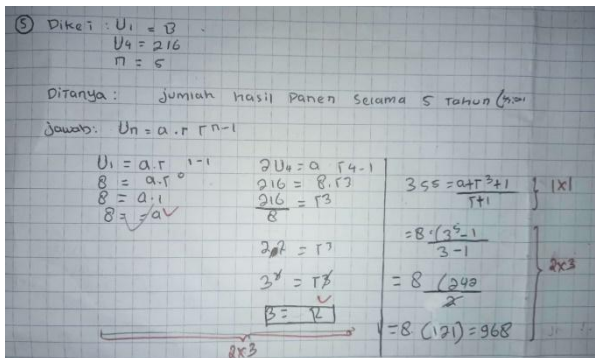 5 Diket : U1 = B
U4 = 216
n = 5
Ditanya : jumlah hasil panen selama 5 tahun
Jawab: Un = a . r r^n-1
U1 = a.r^1-1
8 = a.r^0
8 = a.1
8 = = a
2x3
2U4 = a r^4-1
216 = 8.r3
216/8 = r3
27 = r3
3^3 = r^3
3 = r
3 S5 = a+r^3+1 / r+1
1x1
= 8 . (3^5-1 / 3-1
= 8 (242 / 2
= 8 . (121) = 968
2x3